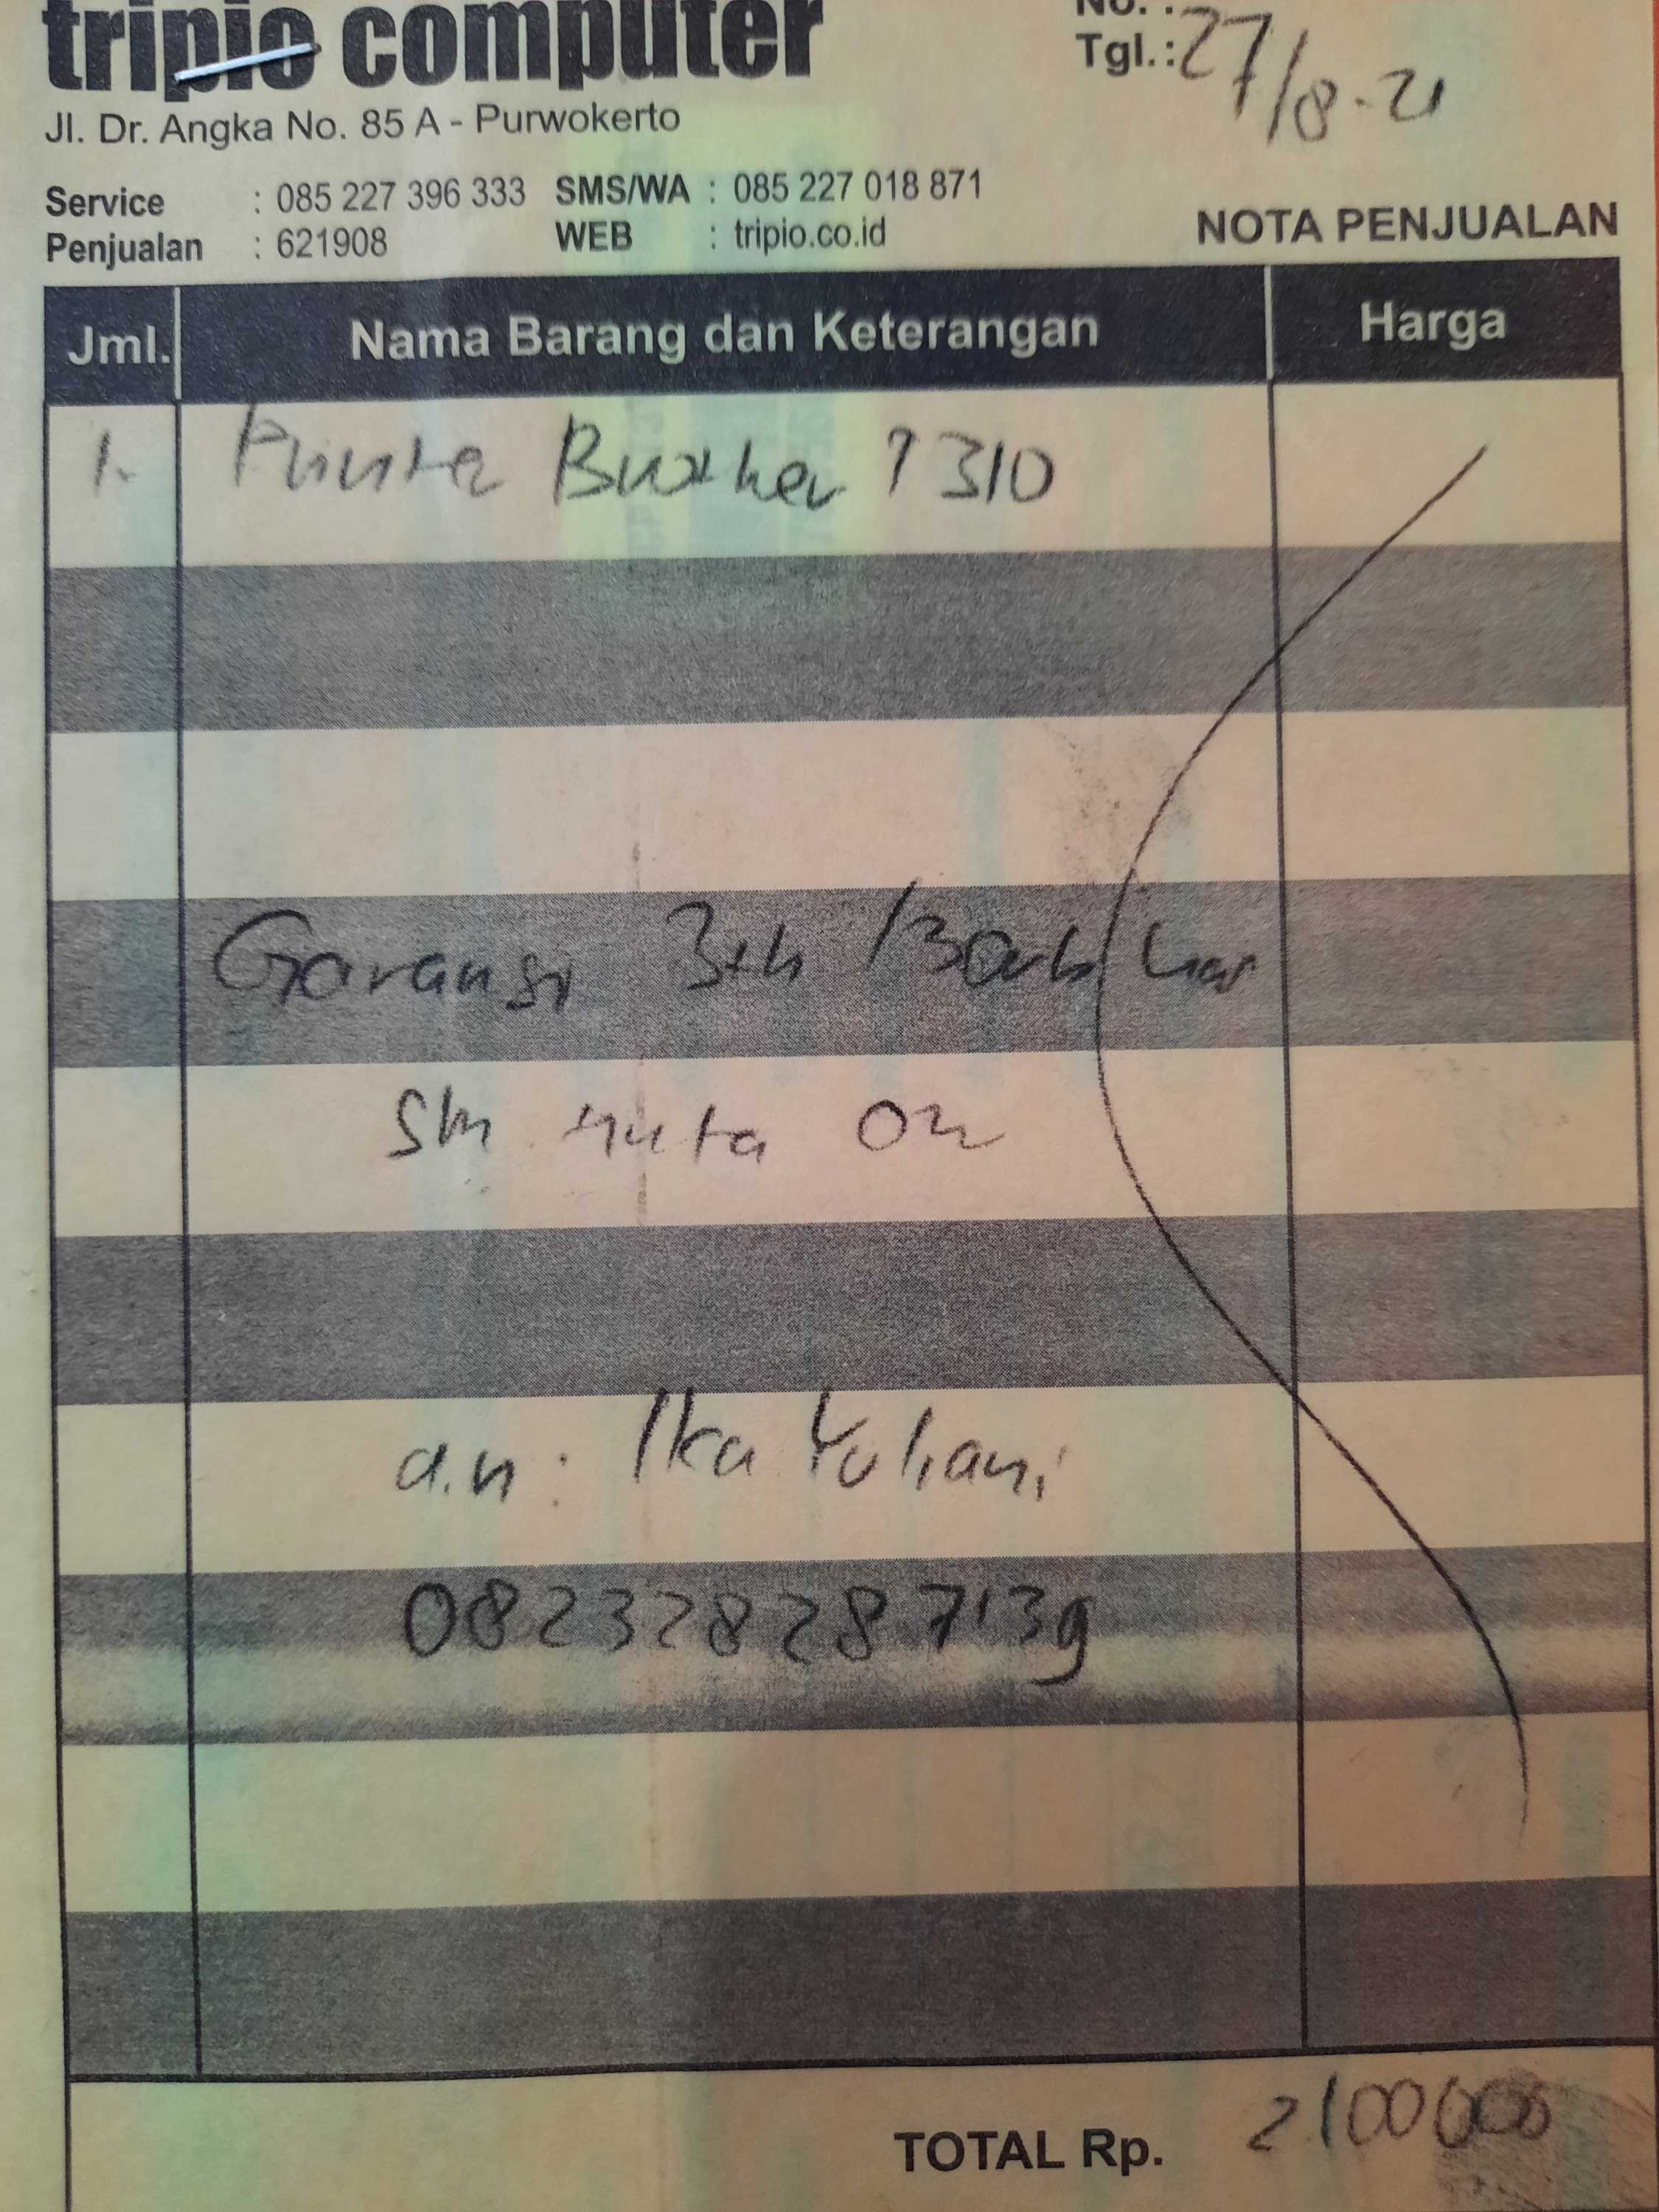 tripio computer
No. :
Tgl. : 27/8-21
Jl. Dr. Angka No. 85 A - Purwokerto
Service : 085 227 396 333 SMS/WA : 085 227 018 871
Penjualan : 621908 WEB : tripio.co.id
NOTA PENJUALAN
Jml. Nama Barang dan Keterangan Harga
1. Printer Brother T310
Garansi 3th
nota
a.n : Ika Yuliani
082328287139
TOTAL Rp. 2100000